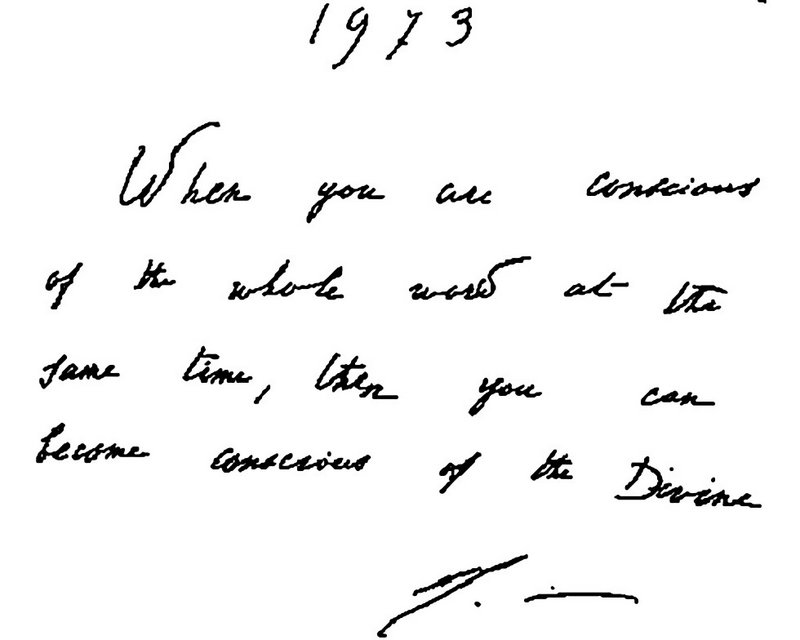 1973
When you are conscious
of the whole world at the
same time, then you can
become conscious of the Divine